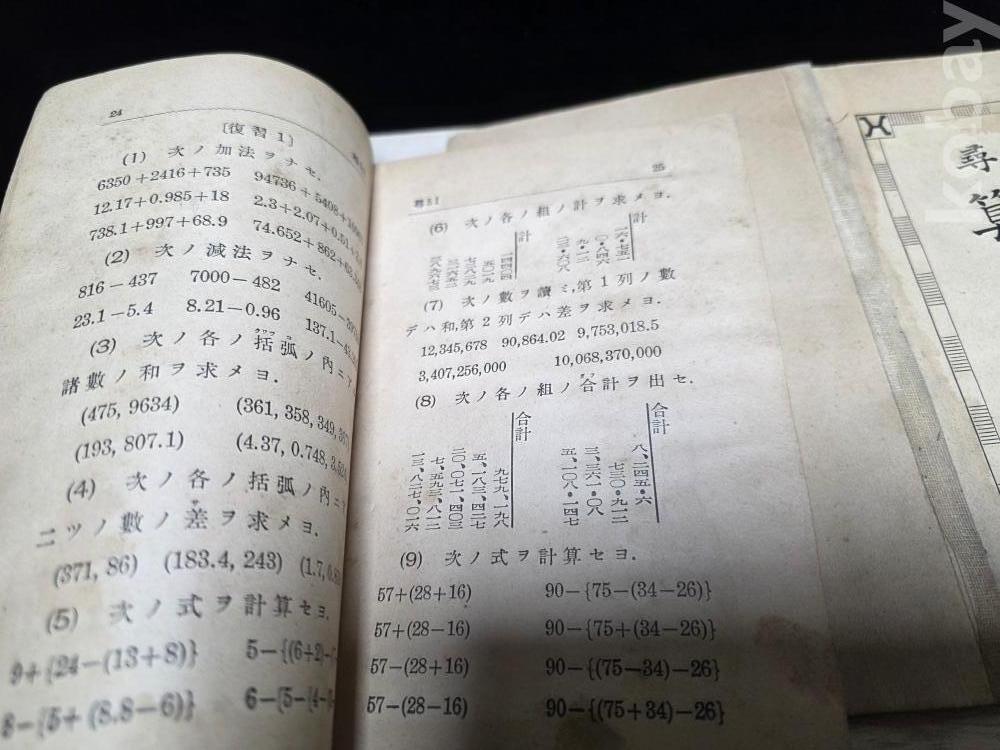 24
[復習1]
(1) 次ノ加法ヲナセ.
6350+2416+735 94736+5408+
12.17+0.985+18 2.3+2.07+0.51+
738.1+997+68.9 74.652+862+
(2) 次ノ減法ヲナセ.
816−437 7000−482 41605−
23.1−5.4 8.21−0.96 137.1−
(3) 次ノ各ノ括弧ノ内ニ
諸數ノ和ヲ求メヨ.
(475, 9634) (361, 358, 349,
(193, 807.1) (4.37, 0.748,
(4) 次ノ各ノ括弧ノ内ニ
二ツノ數ノ差ヲ求メヨ.
(371, 86) (183.4, 243) (1.7,
(5) 次ノ式ヲ計算セヨ.
9+{24−(13+8)} 5−{(6+2)−
8−{5+(8.8−6)} 6−[5−{4−
尋51 25
(6) 次ノ各ノ組ノ計ヲ求メヨ.
計
計
(7) 次ノ數ヲ讀ミ,第1列ノ數
デハ和,第2列デハ差ヲ求メヨ.
12,345,678 90,864.02 9,753,018.5
3,407,256,000 10,068,370,000
(8) 次ノ各ノ組ノ合計ヲ出セ.
合計
八、二四五・六
七三〇・九一二
三、三六一・〇八
五、一〇八・一四七
合計
九七九、一九八
五、一八三、四二七
二〇、〇七一、四〇三
七、五九三、八一二
一三、八二七、〇一六
(9) 次ノ式ヲ計算セヨ.
57+(28+16) 90−{75−(34−26)}
57+(28−16) 90−{75+(34−26)}
57−(28+16) 90−{(75−34)−26}
57−(28−16) 90−{(75+34)−26}
尋
算
kobay